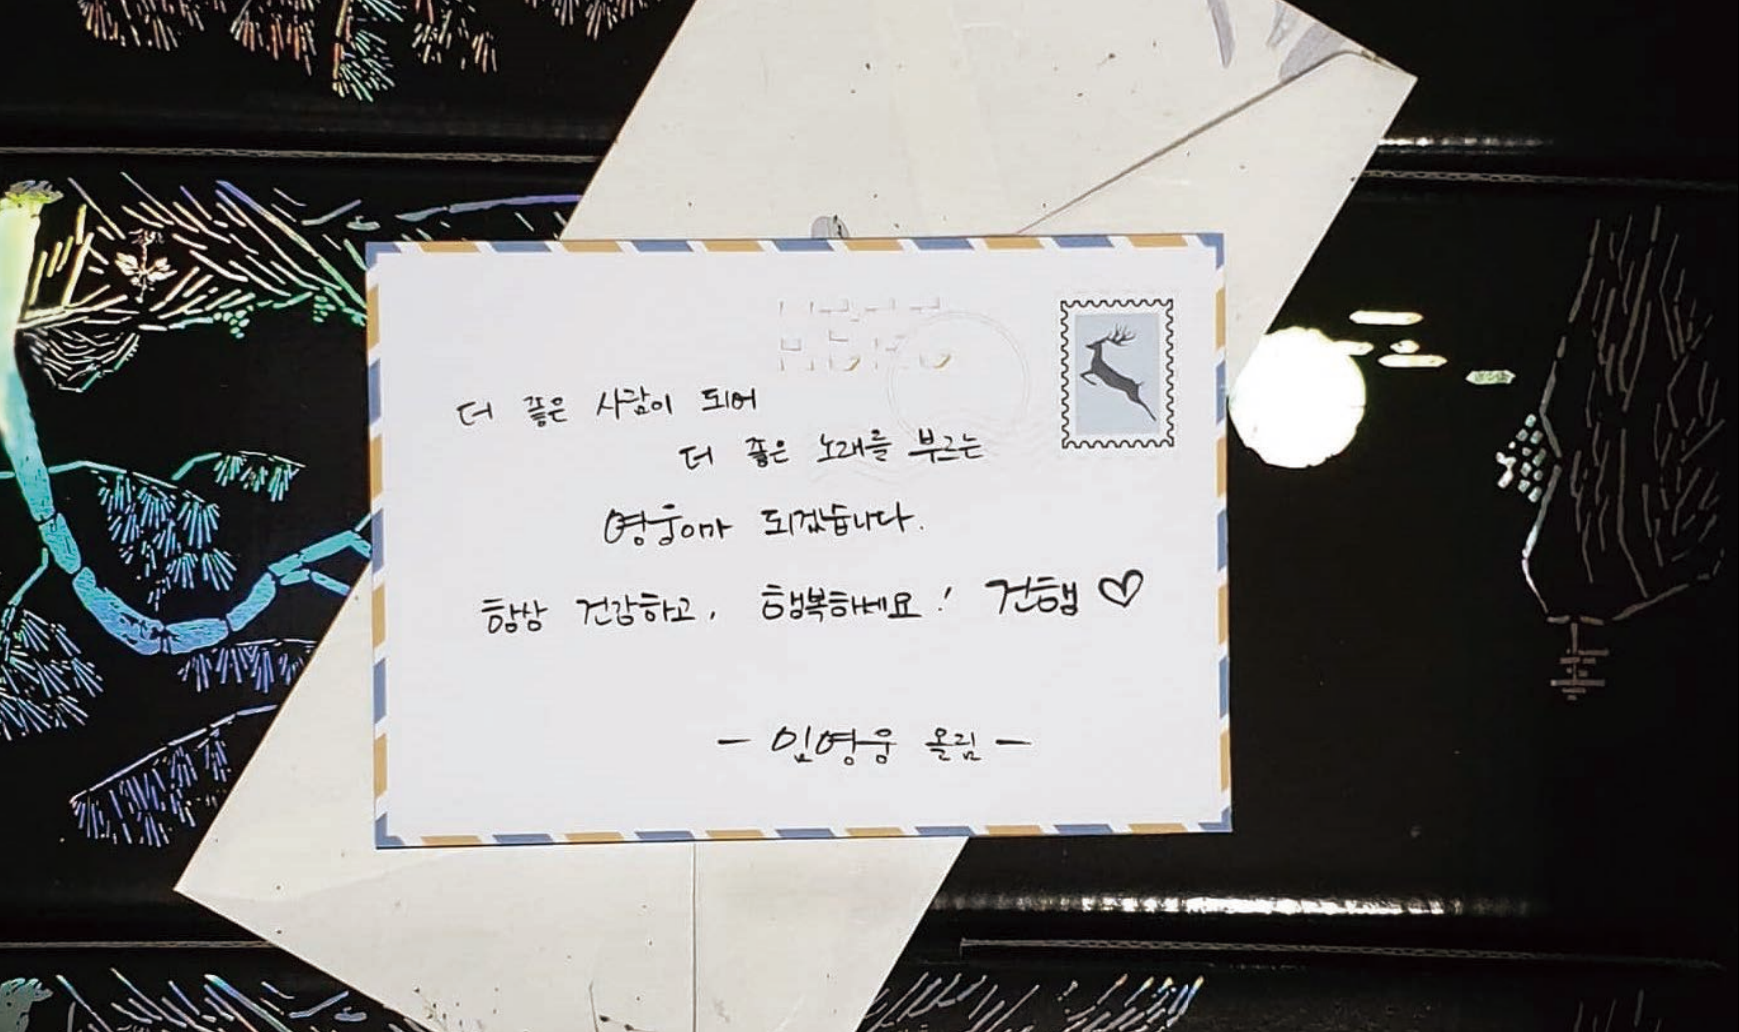 더 좋은 사람이 되어
더 좋은 노래를 부르는
영웅이가 되겠습니다.
항상 건강하고, 행복하세요! 건행♡
- 임영웅 올림 -